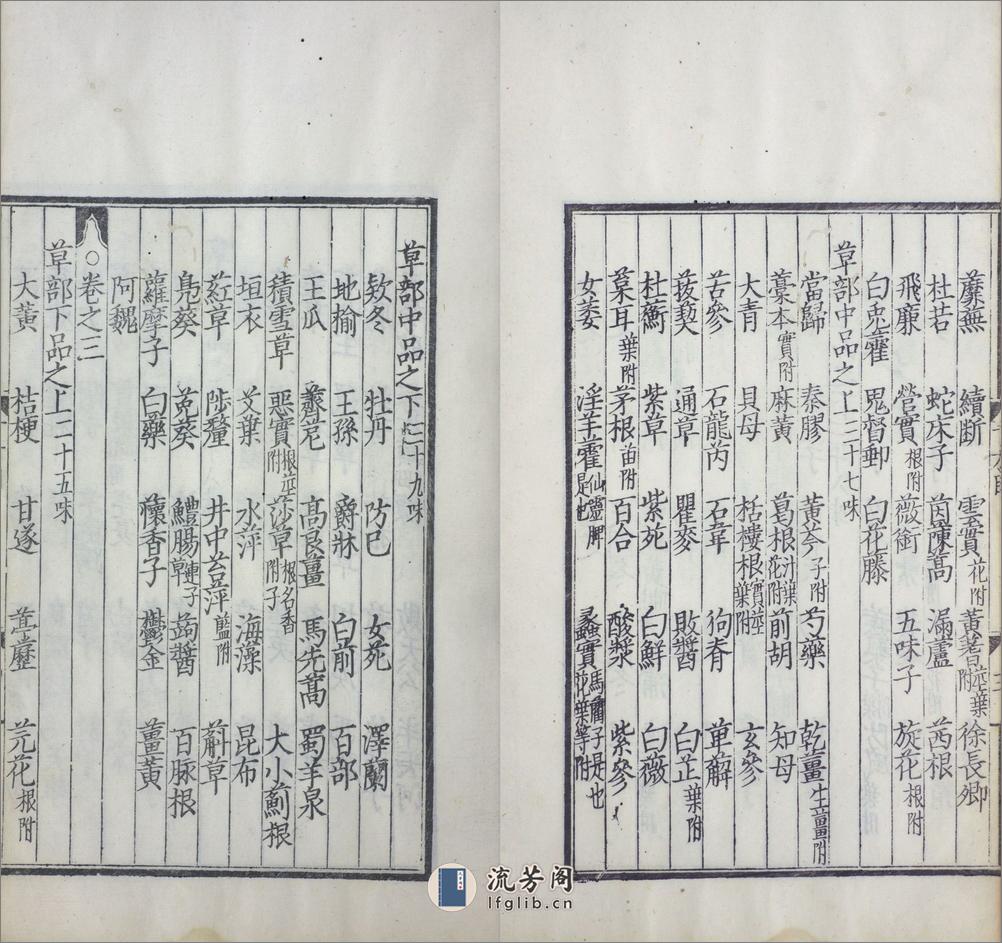 蘪蕪 續斷 雲實花附 黃耆莖葉附 徐長卿
杜若 蛇床子 茵陳蒿 漏蘆 茜根
飛廉 營實根附 薇銜 五味子 旋花根附
白兎藿 鬼督郵 白花藤
草部中品之上三十七味
當歸 秦膠 黃芩子附 芍藥 乾薑生薑附
藁本實附 麻黃 葛根汁葉花附 前胡 知母
大青 貝母 栝樓根實莖葉附 玄參
苦參 石龍芮 石韋 狗脊 萆薢
菝葜 通草 瞿麥 敗醬 白芷葉附
杜蘅 紫草 紫菀 白鮮 白薇
菜耳葉附 茅根苗附 百合 酸漿 紫參
女萎 淫羊藿仙靈脾是也 蠡實馬藺子是也花葉等附
草部中品之下三十九味
欵冬 牡丹 防巳 女菀 澤蘭
地榆 王孫 爵牀 白前 百部
王瓜 薺苨 高良薑 馬先蒿 蜀羊泉
積雪草 惡實根莖附 莎草根名香附子 大小薊根
垣衣 艾葉 水萍 海藻 昆布
葒草 陟釐 井中苔萍藍附 蔛草
鳧葵 菟葵 鱧腸草蓮子 蒟醬 百脉根
蘿摩子 白藥 懷香子 鬱金 薑黃
阿魏
○卷之三
草部下品之上二十五味
大黃 桔梗 甘遂 葶藶 芫花根附
流芳阁
lfglib.cn